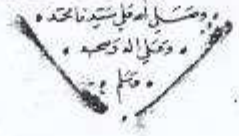 وصلى الله على سيدنا محمد
وعلى اله وصحبه
وسلم